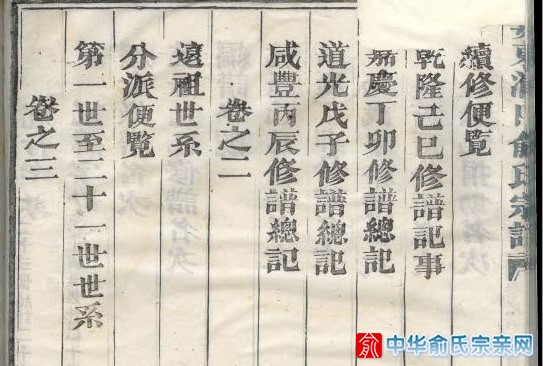 續修便覽
乾隆己巳修譜記事
嘉慶丁卯修譜總記
道光戊子修譜總記
咸豐丙辰修譜總記
卷之二
遠祖世系
分派便覽
第一世至二十一世世系
卷之三
俞氏宗譜
俞 中华俞氏宗亲网